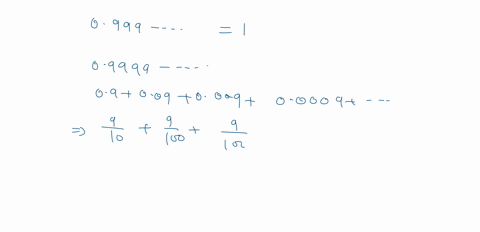 0.999 ---- = 1
0.9999 -----
0.9 + 0.09 + 0.009 + 0.0009 + ---
⇒ 9/10 + 9/100 + 9/100